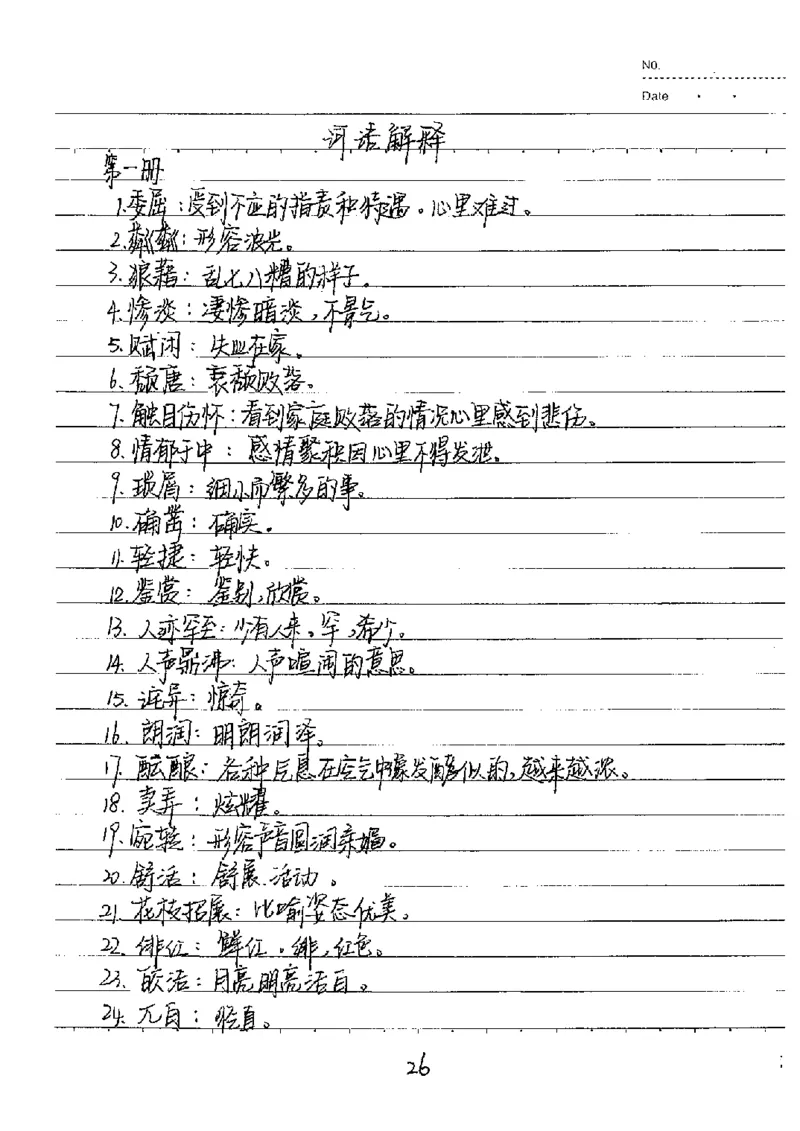 No.
Date
词语解释
第一册
1.委屈:受到不应的指责和待遇。心里难过。
2.粼粼:形容波光。
3.狼藉:乱七八糟的样子。
4.惨淡:凄惨暗淡,不景气。
5.赋闲:失业在家。
6.颓唐:衰颓败落。
7.触目伤怀:看到家庭败落的情况心里感到悲伤。
8.情郁于中:感情聚积因心里不得发泄。
9.琐屑:细小而繁多的事。
10.确凿:确实。
11.轻捷:轻快。
12.鉴赏:鉴别,欣赏。
13.人迹罕至:少有人来。罕,希少。
14.人声鼎沸:人声喧闹的意思。
15.诧异:惊奇。
16.朗润:明朗润泽。
17.酝酿:各种气息在空气中像发酵似的,越来越浓。
18.卖弄:炫耀。
19.宛转:形容声音圆润柔媚。
20.舒活:舒展.活动。
21.花枝招展:比喻姿态优美。
22.绯红:鲜红。绯,红色。
23.皎洁:月亮明亮洁白。
24.兀自:径自。
26